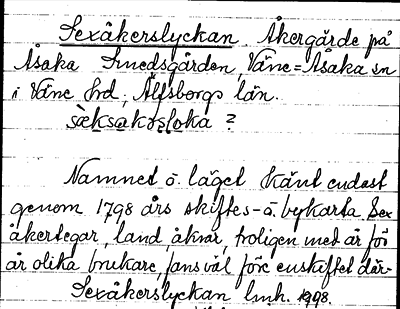 Sexåkerslyckan. Åkergärde på
Åsaka Smedsgården, Väne=Åsaka sn
i Väne hd, Älfsborgs län.
sǎksakəsloka ?
Namnet o. läget känt endast
genom 1798 års skiftes- o. bykarta. Sex
åkertegar, land åkrar, troligen med år för
år olika brukare, fans väl före enskiftet där-
Sexåkerslyckan lmh. 1998.